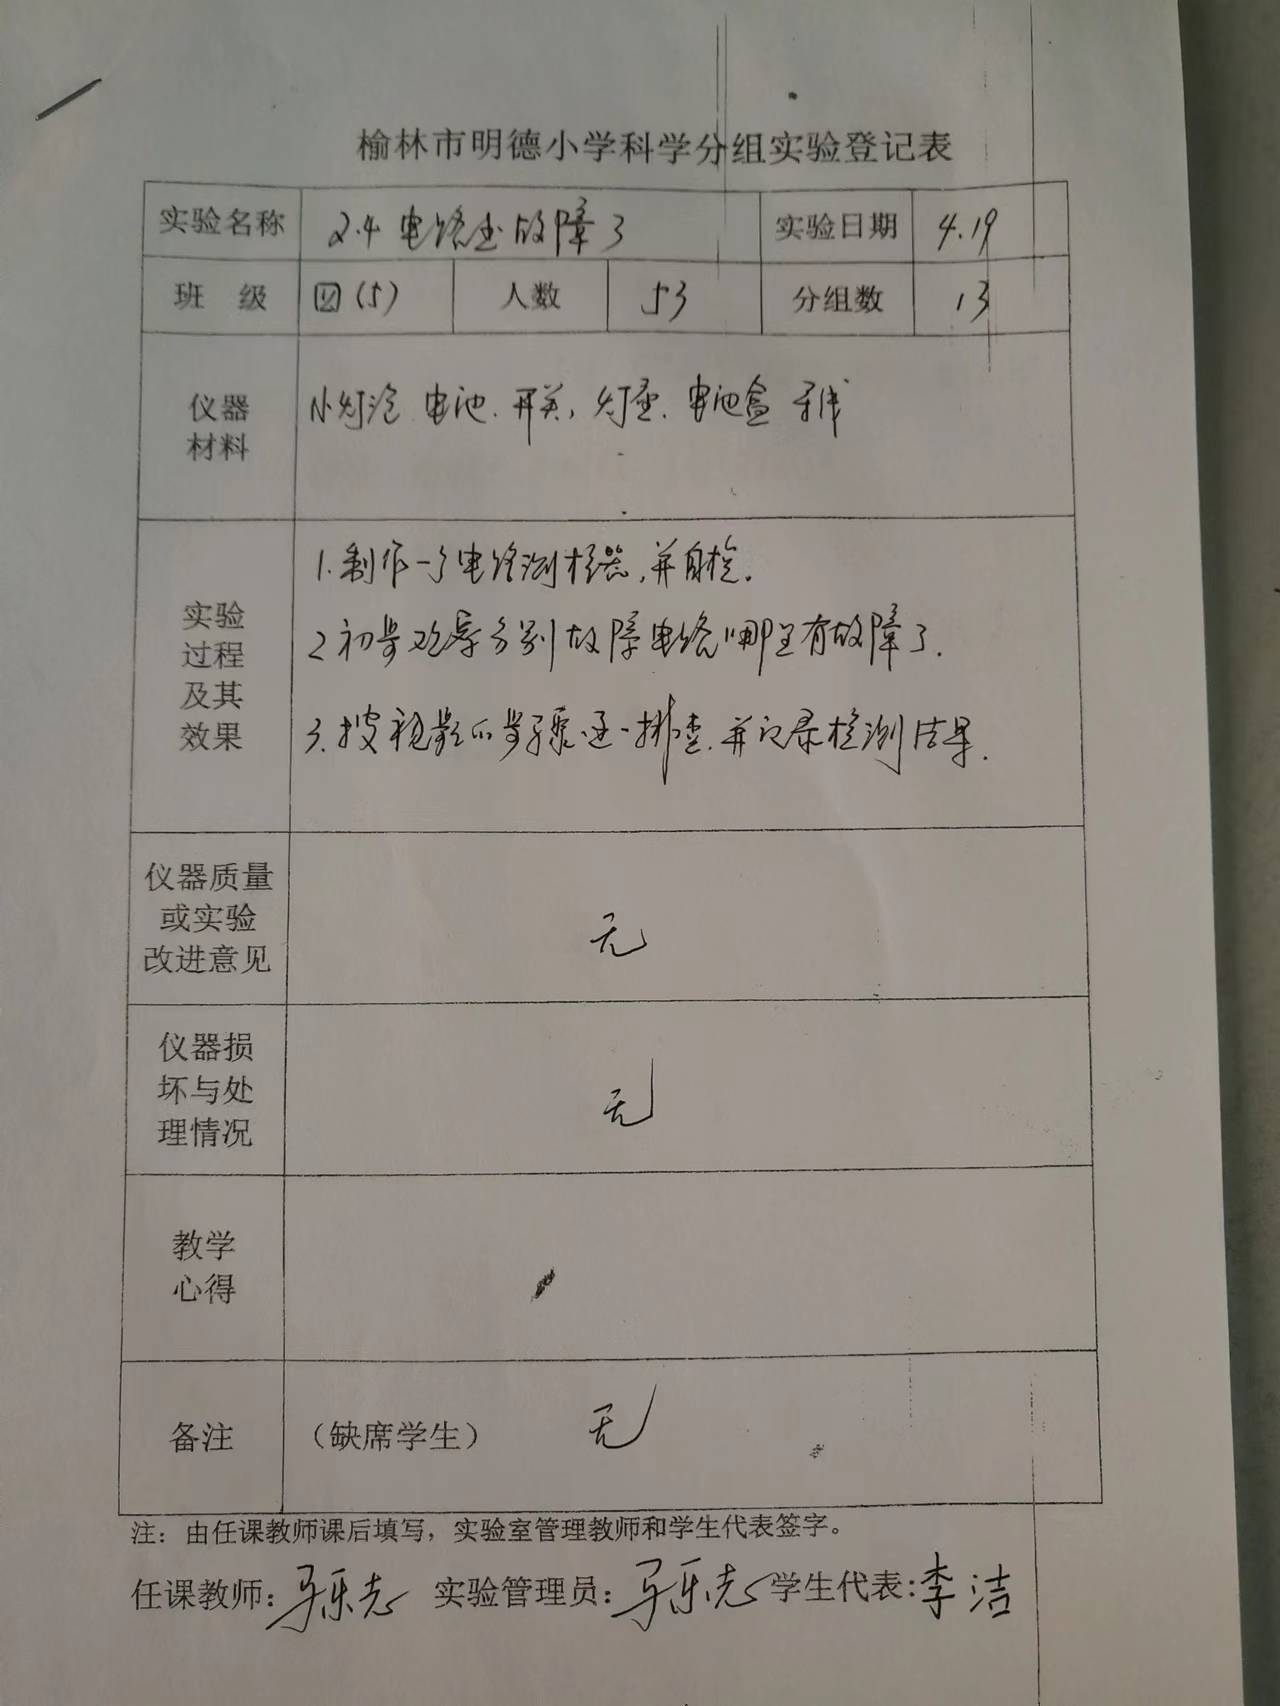 榆林市明德小学科学分组实验登记表
实验名称 2.4 电路出故障了 实验日期 4.19
班 级 四(5) 人数 53 分组数 13
仪器
材料
小灯泡 电池. 开关, 灯座. 电池盒 导线
实验
过程
及其
效果
1. 制作一个电路测检器,并自检.
2 初步观察分别故障电路哪里有故障了.
3. 按视频的步骤逐一排查. 并记录检测结果.
仪器质量
或实验
改进意见
无
仪器损
坏与处
理情况
无
教学
心得
备注 (缺席学生) 无
注: 由任课教师课后填写, 实验室管理教师和学生代表签字。
任课教师: 马乐志 实验管理员: 马乐志 学生代表: 李洁